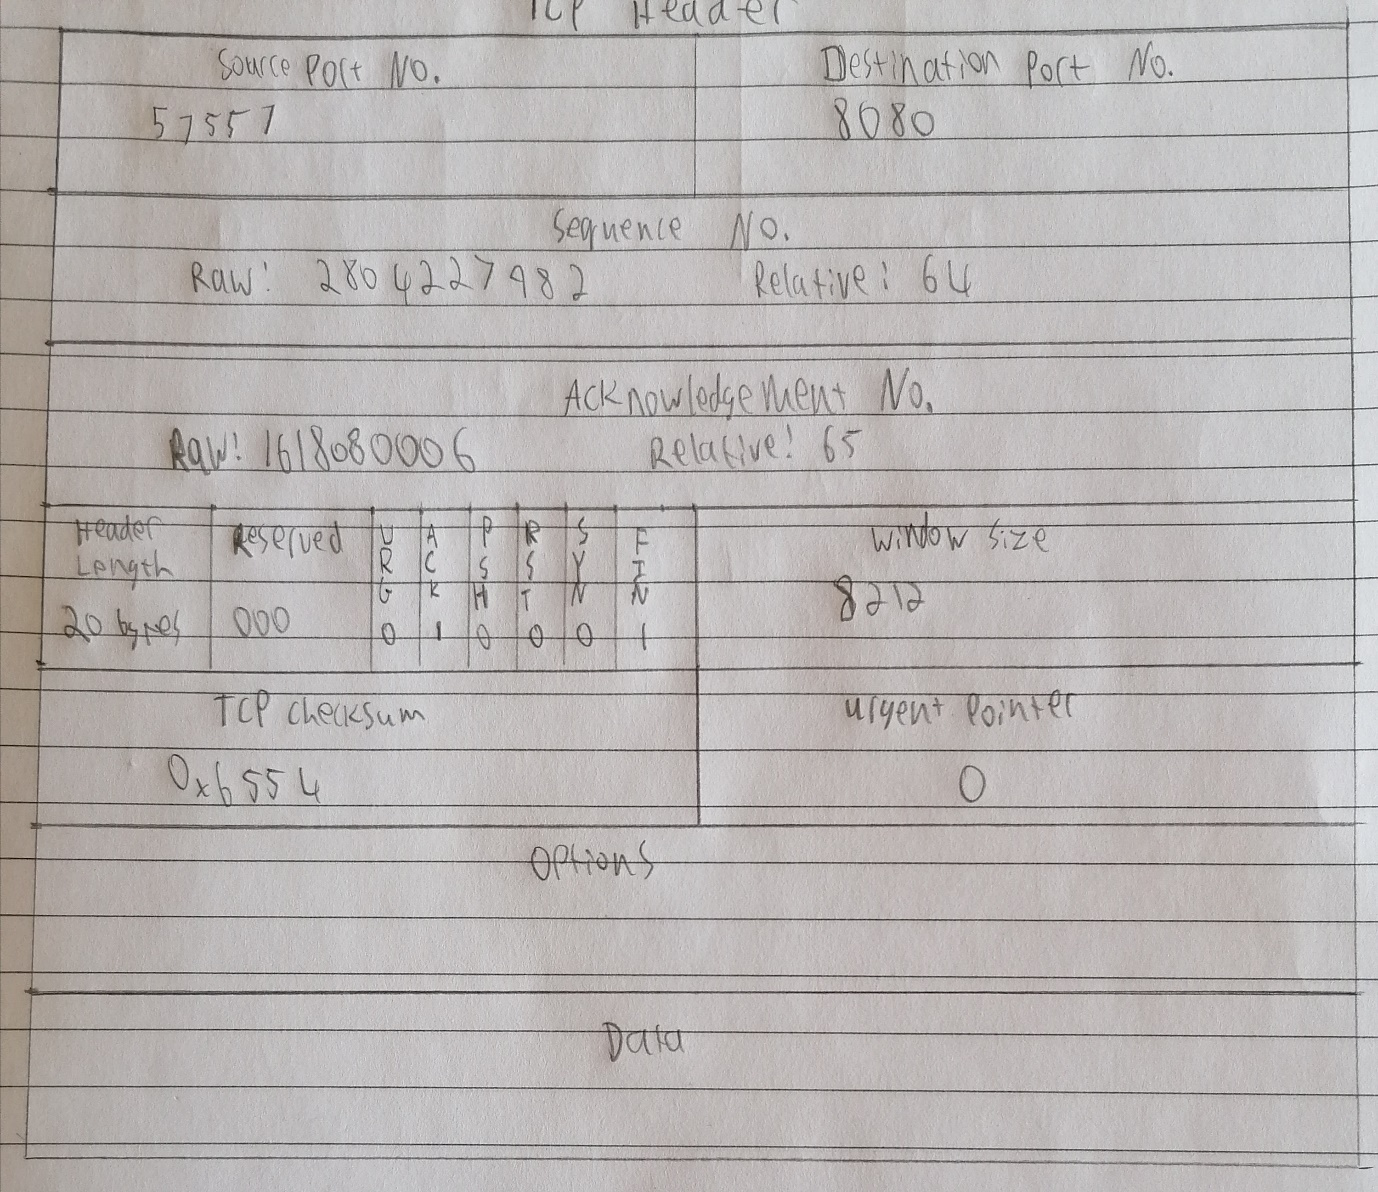 TCP Header
Source Port No. Destination Port No.
57557 8080
Sequence No.
Raw: 2804227982 Relative: 64
Acknowledgement No.
Raw: 1618080006 Relative: 65
Header Length Reserved URG ACK PSH RST SYN FIN Window Size
20 bytes 000 0 1 0 0 0 1 8212
TCP Checksum Urgent Pointer
0x6554 0
Options
Data